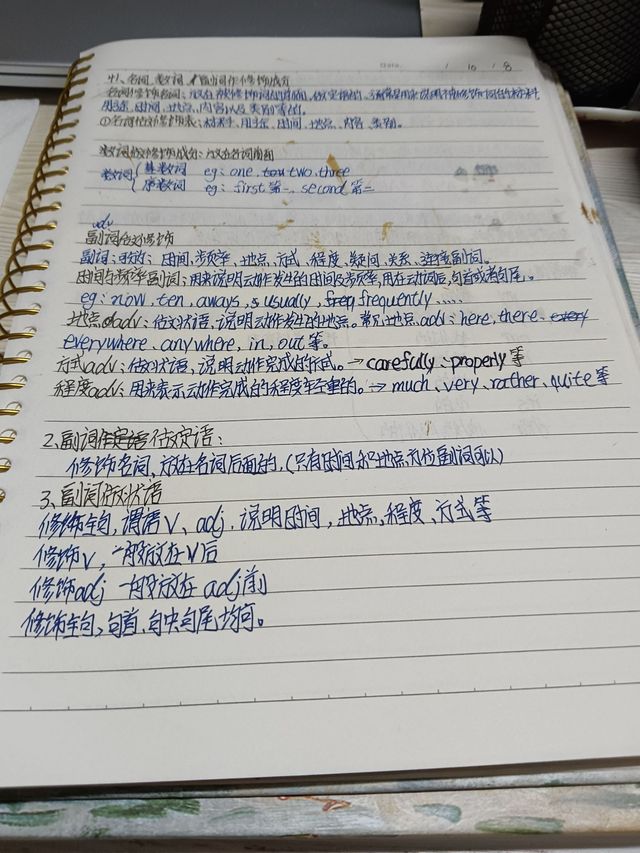 Date. / 10 / 8
名词、数词、副词作修饰成分
名词作修饰名词：放在被修饰词的前面，做定语的，
用途、时间、地点、内容以及类别等的。
①名词做修饰表：材料、用途、时间、地点、内容、类别。
数词做修饰成分：放在名词前面
数词 基数词 eg：one、two、three
序数词 eg：first 第一、second 第二
adv
副词做修饰
副词：时间、频率、地点、方式、程度、疑问、关系、连接副词。
时间与频率副词：用来说明动作发生的时间及频率，用在动词后，句首或者句尾。
eg：now、ten、aways、usually、frequently、....
地点adv：做状语，说明动作发生的地点。常见地点adv：here、there、
everywhere、anywhere、in、out等。
方式adv：做状语，说明动作完成的形式。→carefully、properly等
程度adv：用来表示动作完成的程度轻重的。→much、very、rather、quite等
2、副词做定语：
修饰名词，放在名词后面的，（只有时间和地点方位副词可以）
3、副词做状语
修饰全句，谓语V、adj、说明时间，地点、程度、方式等
修饰V，一般放在V后
修饰adj 一般放在adj前
修饰全句，句首、句中句尾均可。